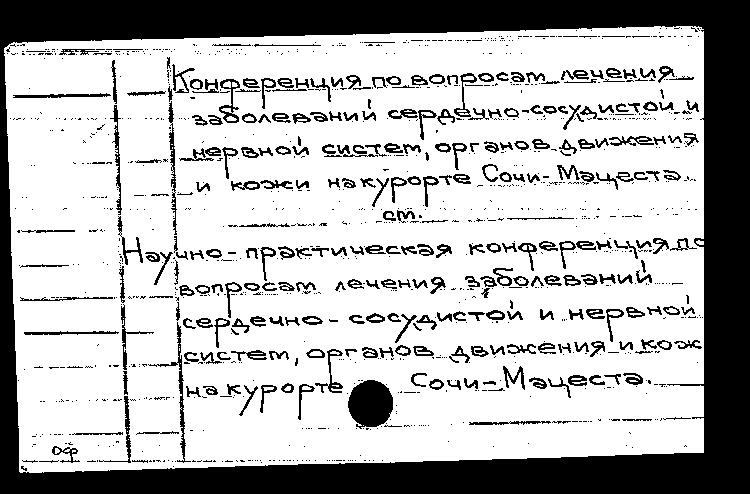 Конференция по вопросам лечения
заболеваний сердечно-сосудистой и
нервной систем, органов движения
и кожи на курорте Сочи-Мацеста.
см.
Научно-практическая конференция по
вопросам лечения заболеваний
сердечно-сосудистой и нервной
систем, органов движения и кож
на курорте Сочи-Мацеста.
ОФ